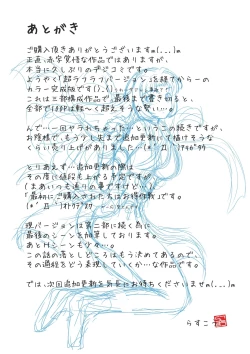 あとがき
ご購入頂きありがとうございますm(_ _)m
正直、赤字覚悟な作品ではありますが、
本当に久しぶりのデジコミです。
ようやく「超ラフラフバージョン」を経てからの
カラー完成版です
これは三部構成作品で、最後まで書き切ると、
全部でほぼ
んで、一回やられちゃった…というこの続きですが、
お陰様で、もう少し先まで追加更新して描けそうな
くらい売り上げがありました
とりあえず…追加更新の際は
その度に値段も上がる予定ですが
(まあいつも通りの事ですけど…
「最初にご購入された方はお得作戦」です。
現バージョンは第二部に続く為に
最後のシーンを加筆しております。
あとHシーンも少々…。
この話の落としどころはもう決めてあるので、
その過程をどう表現していくか…な作品です。
では、次回追加更新を気長にお待ちくださいませm(_ _)m
らすこ